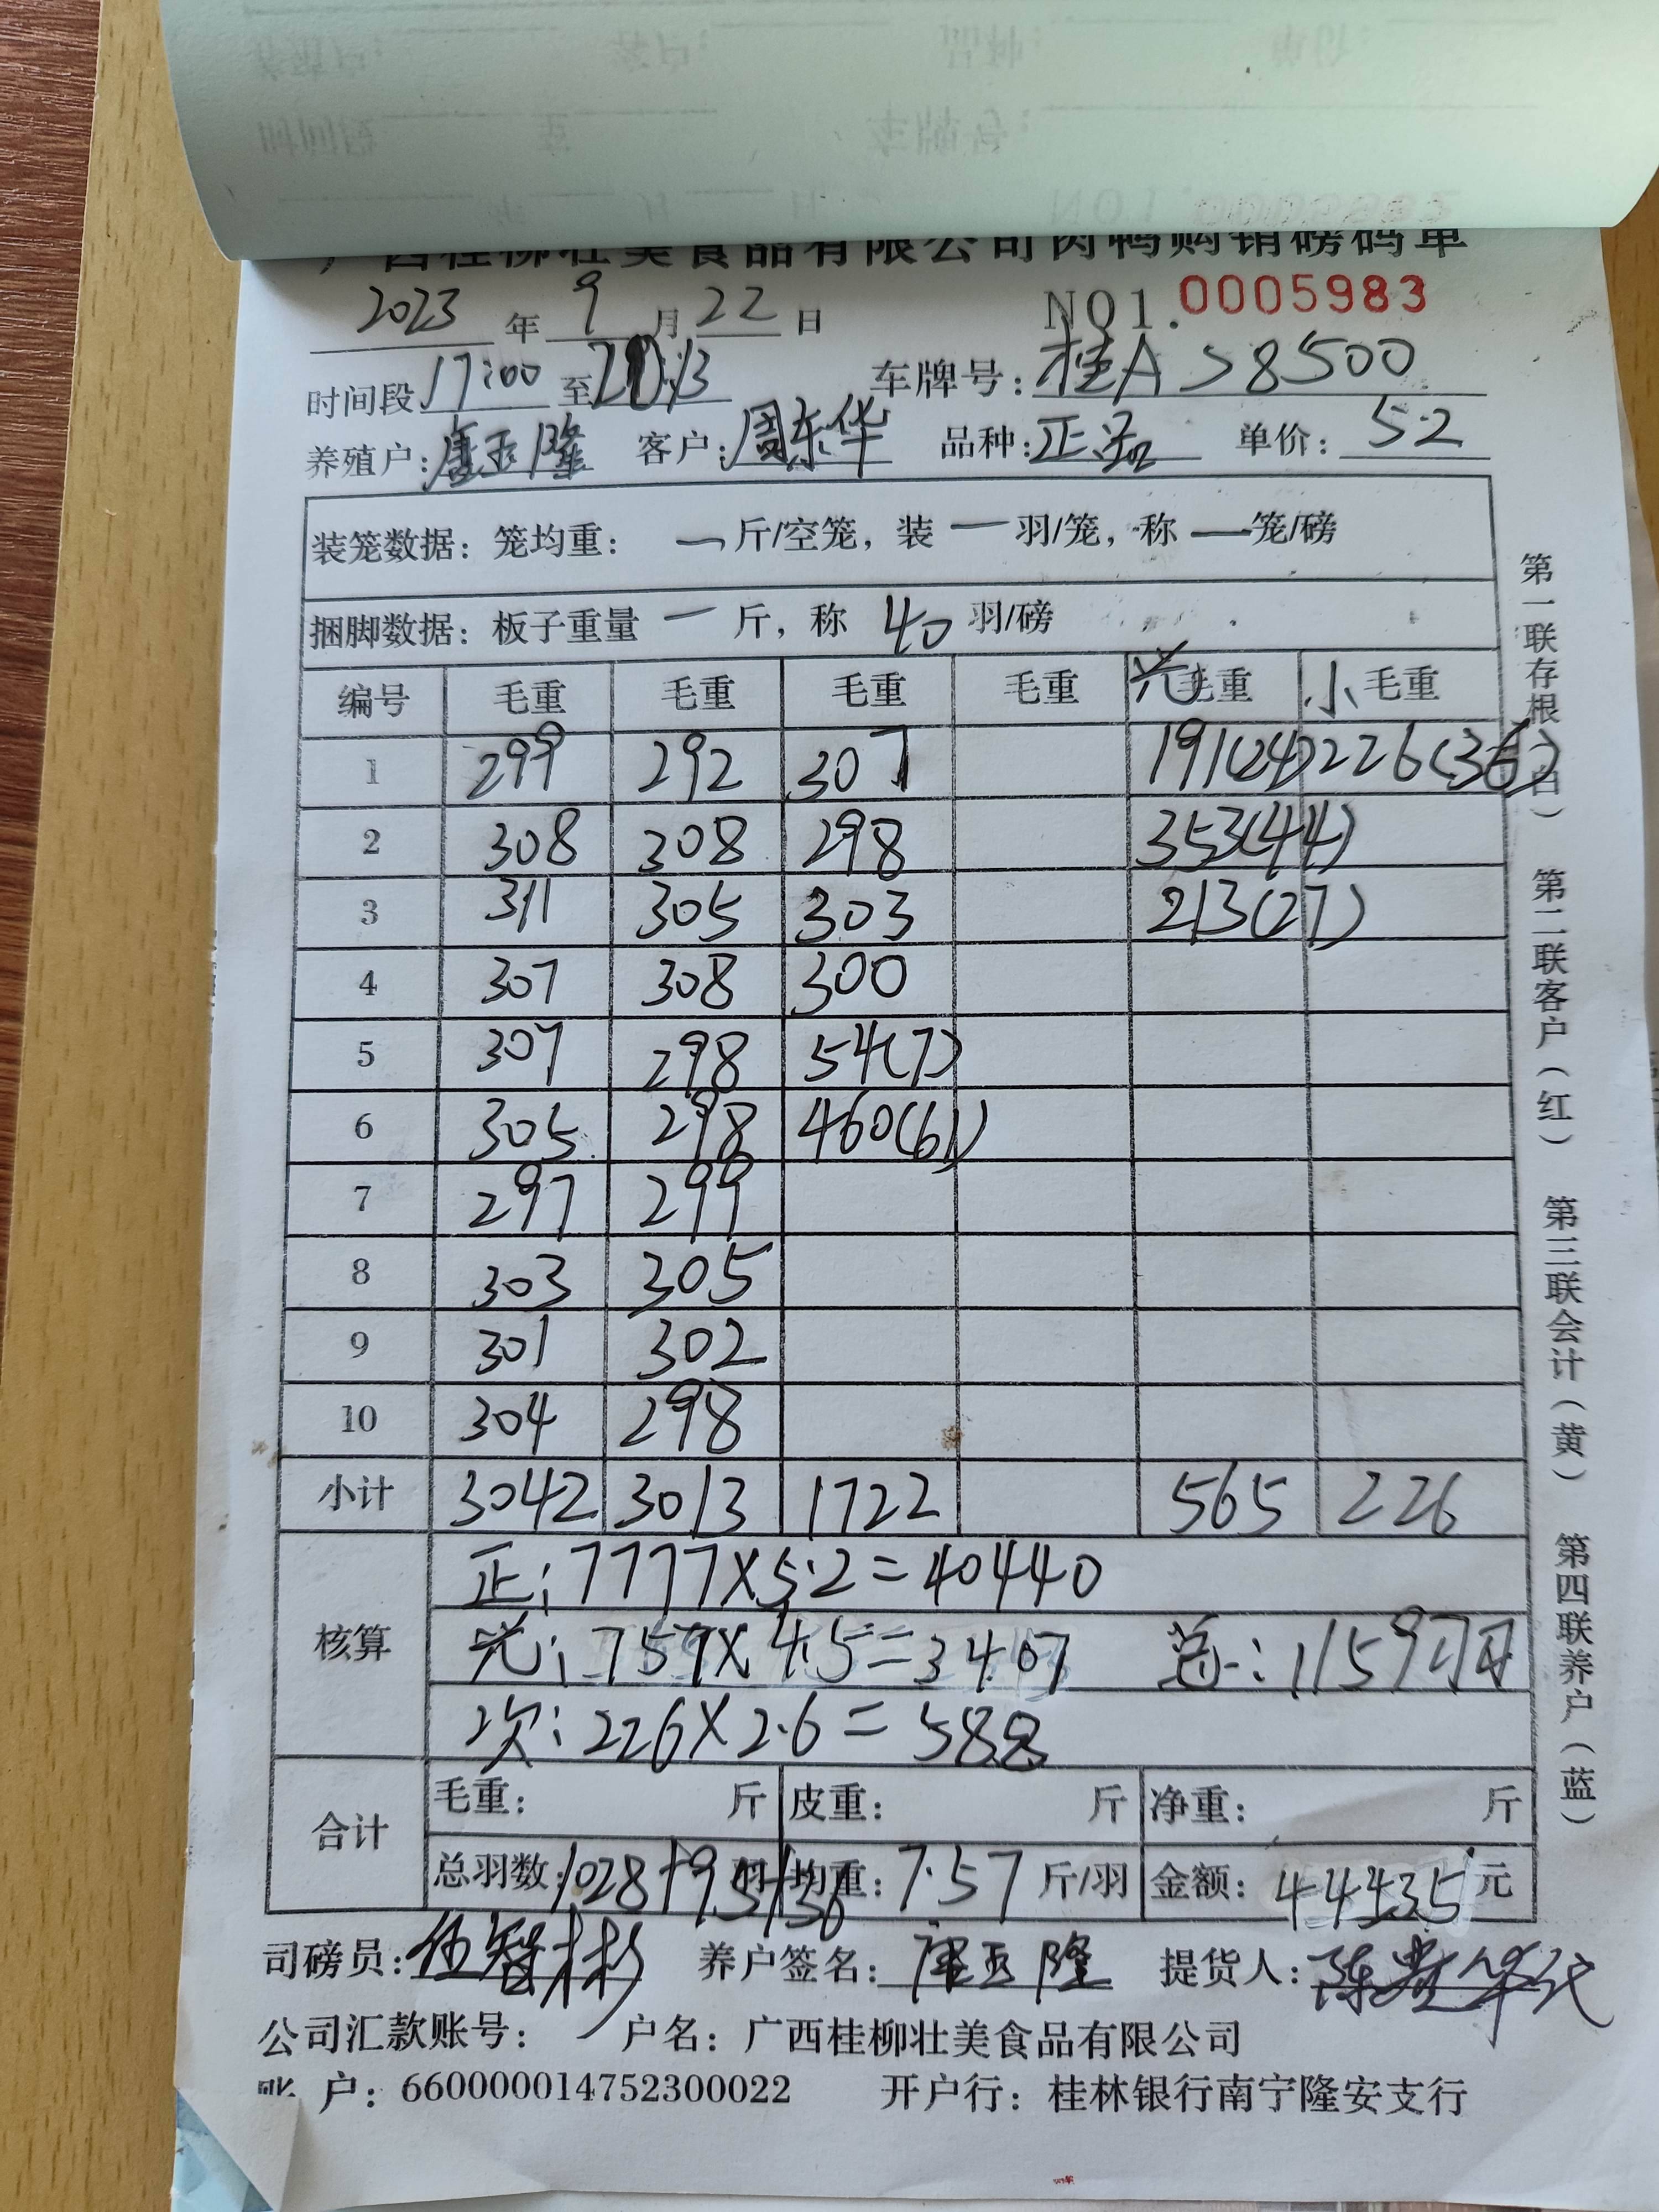 广西桂柳壮美食品有限公司肉鸭购销磅码单
2023 年 9 月 22 日 NO1.0005983
时间段 17:00 至 车牌号: 桂A S8500
养殖户: 唐玉隆 客户: 周东华 品种: 正品 单价: 5.2
装笼数据: 笼均重: 一 斤/空笼, 装 一 羽/笼, 称 一 笼/磅
捆脚数据: 板子重量 一 斤, 称 40 羽/磅
编号 毛重 毛重 毛重 毛重 光毛重 小毛重
1 299 292 307 191(24) 226(36)
2 308 308 298 353(44)
3 311 305 303 213(27)
4 307 308 300
5 307 298 54(7)
6 305 298 460(61)
7 297 299
8 303 305
9 301 302
10 304 298
小计 3042 3013 1722 565 226
核算
正: 7777×5.2=40440
光: 757×4.5=3407 总: 1159羽
次: 226×2.6=588
合计
毛重: 斤 皮重: 斤 净重: 斤
总羽数: 1028+95+36 羽 均重: 7.57 斤/羽 金额: 44435 元
司磅员: 伍智彬 养户签名: 唐玉隆 提货人:
公司汇款账号: 户名: 广西桂柳壮美食品有限公司
账 户: 660000014752300022 开户行: 桂林银行南宁隆安支行
第一联存根(白) 第二联客户(红) 第三联会计(黄) 第四联养户(蓝)